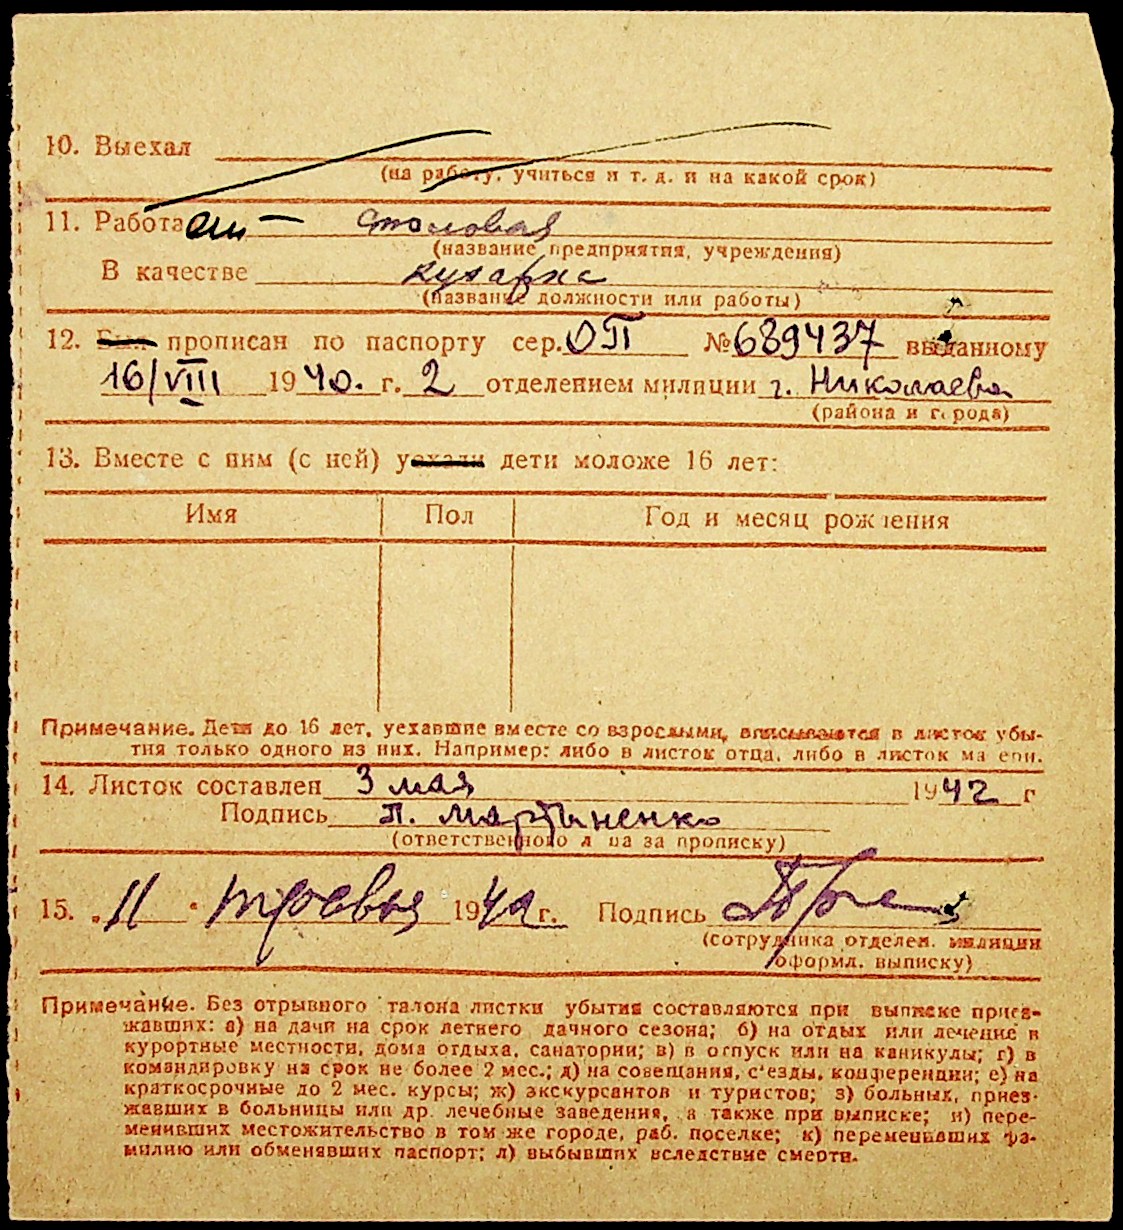 10. Выехал
(на работу, учиться и т. д. и на какой срок)
11. Работа столовая
(название предприятия, учреждения)
В качестве кухарка
(название должности или работы)
12. Был прописан по паспорту сер. ОП № 689437 выданному
16/VIII 1940. г. 2 отделением милиции г. Николаева
(района и города)
13. Вместе с ним (с ней) уехали дети моложе 16 лет:
Имя Пол Год и месяц рождения
Примечание. Дети до 16 лет, уехавшие вместе со взрослыми, вписываются в листок убы-
тия только одного из них. Например: либо в листок отца, либо в листок матери.
14. Листок составлен 3 мая 1942 г
Подпись П. Мартыненко
(ответственного лица за прописку)
15. „11 " травня 1942 г. Подпись
(сотрудника отделен. милиции
оформл. выписку)
Примечание. Без отрывного талона листки убытия составляются при выписке приез-
жавших: а) на дачи на срок летнего дачного сезона; б) на отдых или лечение в
курортные местности, дома отдыха, санатории; в) в отпуск или на каникулы; г) в
командировку на срок не более 2 мес.; д) на совещания, с'езды, конференции; е) на
краткосрочные до 2 мес. курсы; ж) экскурсантов и туристов; з) больных, приез-
жавших в больницы или др. лечебные заведения, а также при выписке; и) пере-
менивших местожительство в том же городе, раб. поселке; к) переменивших фа-
милию или обменявших паспорт; л) выбывших вследствие смерти.